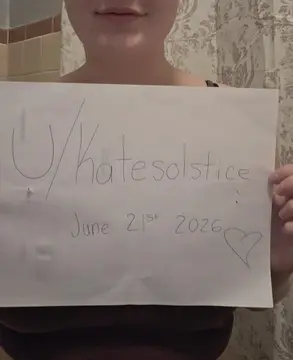 U/katesolstice
June 21st 2026